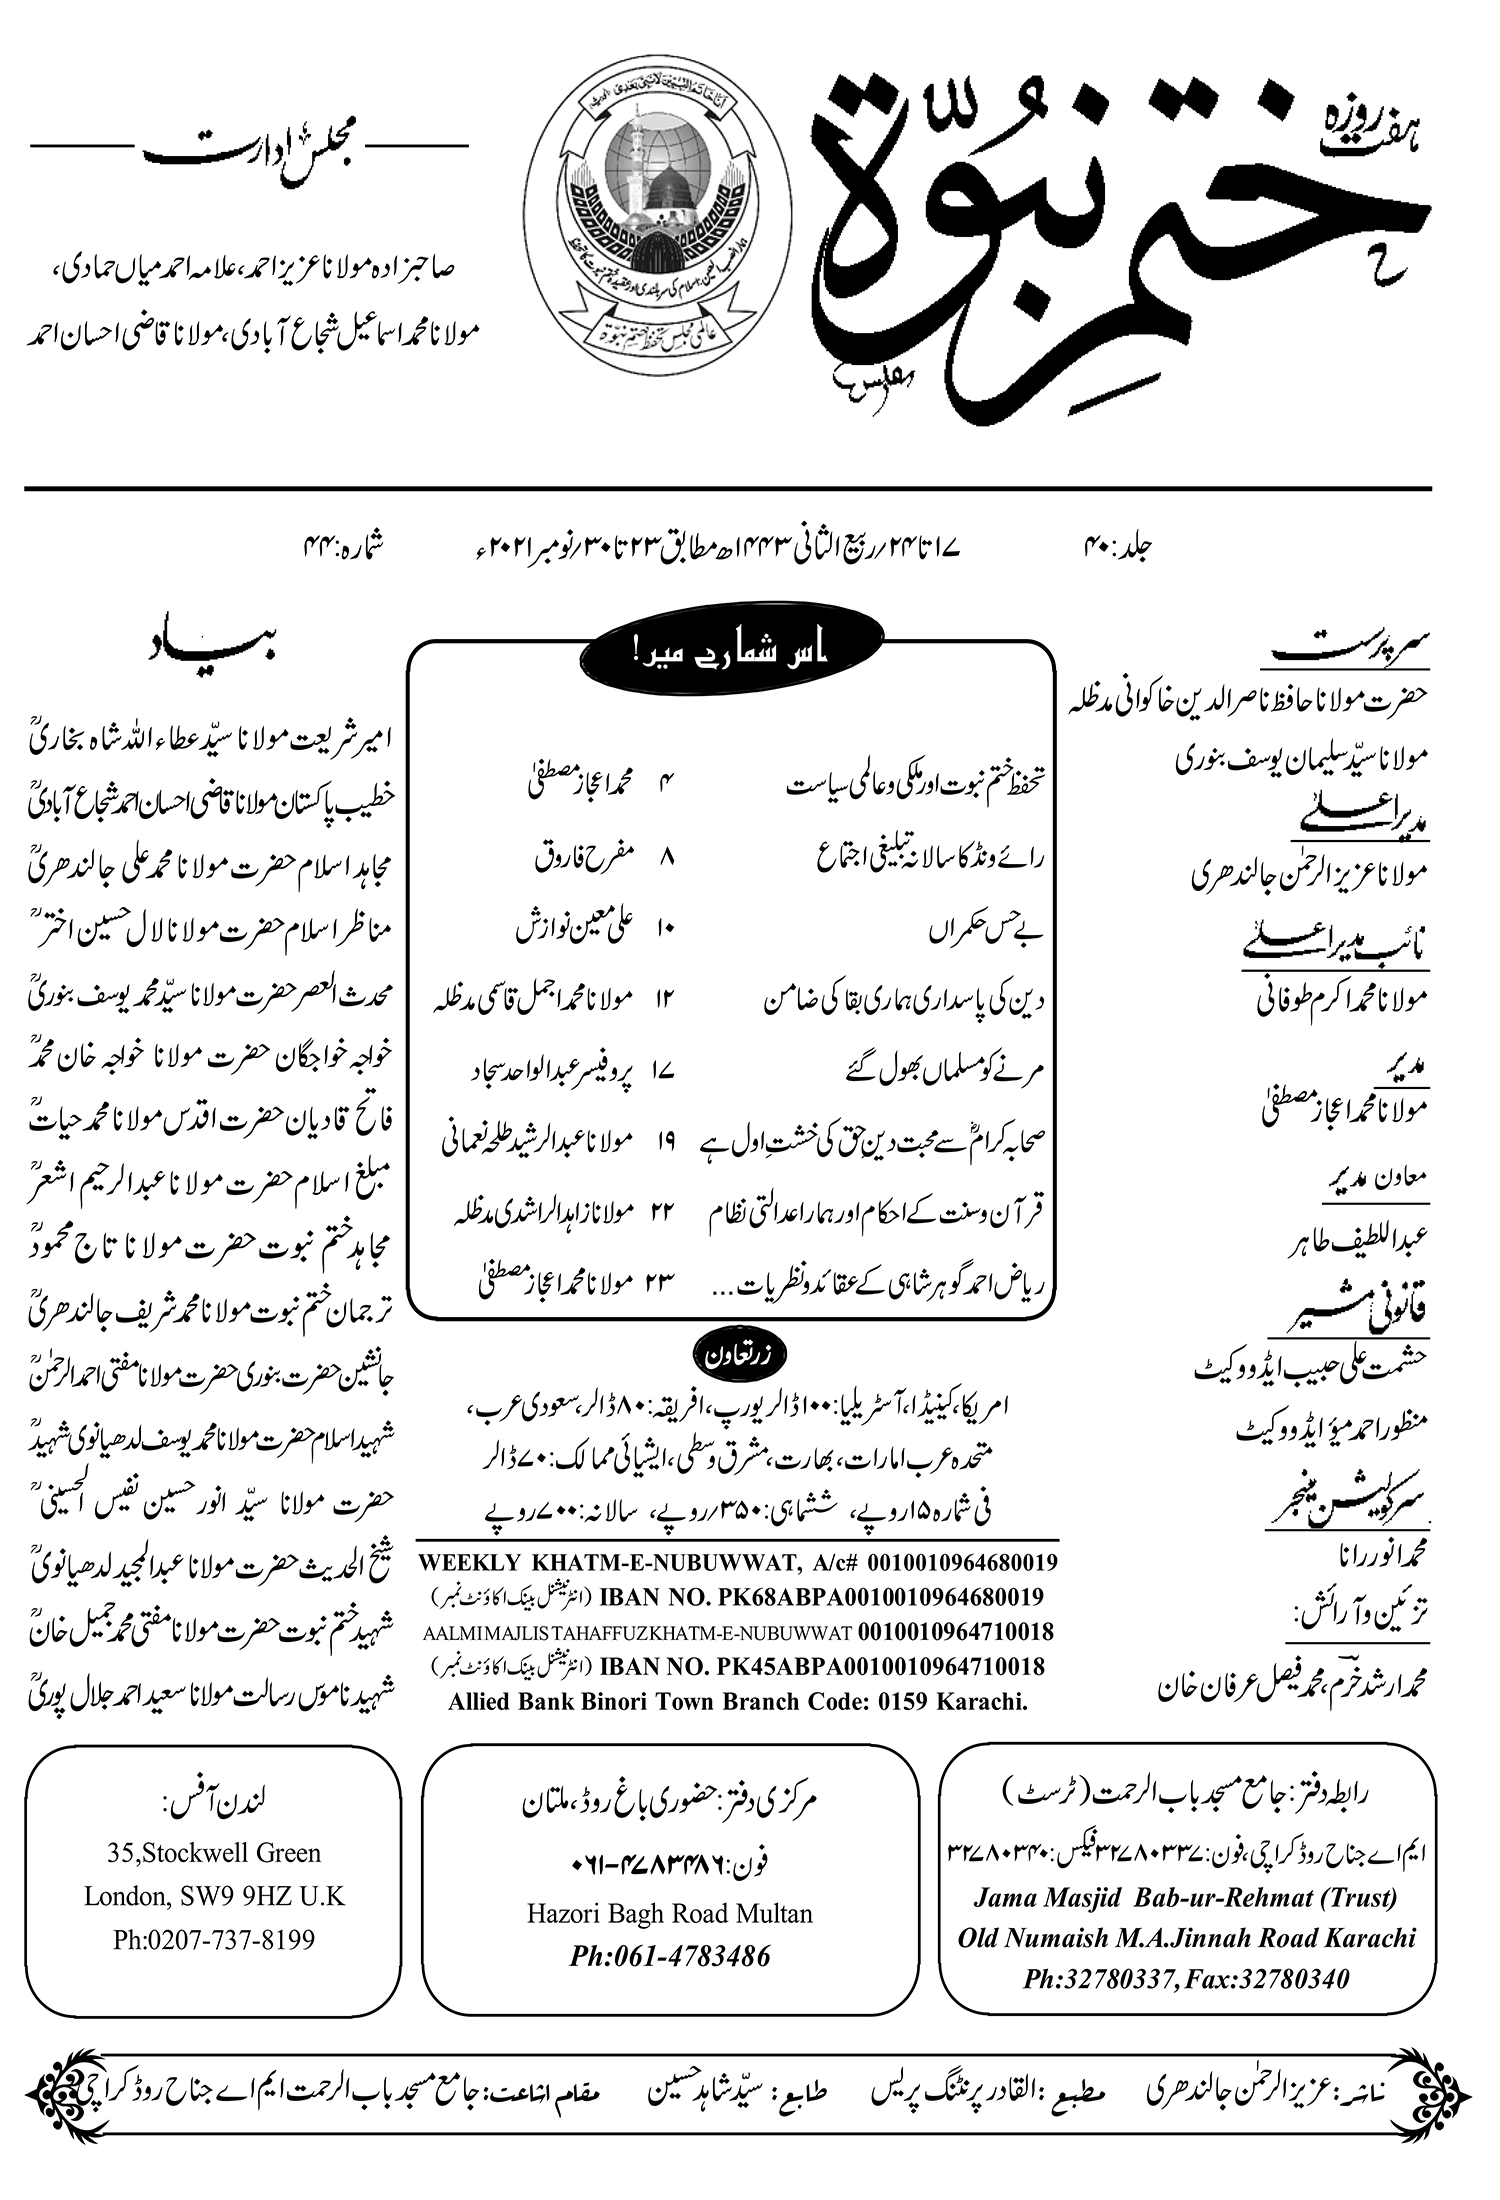 ہفت روزہ
ختم نبوّة
مجلس ادارت
صاحبزادہ مولانا عزیز احمد، علامہ احمد میاں حمادی،
مولانا محمد اسماعیل شجاع آبادی، مولانا قاضی احسان احمد
عالمی مجلس تحفظ ختم نبوّة
جلد: ۴۰
۱۷ تا ۲۴/ربیع الثانی ۱۴۴۳ھ مطابق ۲۳ تا ۳۰/نومبر ۲۰۲۱ء
شمارہ: ۴۴
سرپرست
حضرت مولانا حافظ ناصر الدین خاکوانی مدظلہ
مولانا سیّد سلیمان یوسف بنوری
مدیر اعلےٰ
مولانا عزیز الرحمٰن جالندھری
نائب مدیر اعلےٰ
مولانا محمد اکرم طوفانی
مدیر
مولانا محمد اعجاز مصطفیٰ
معاون مدیر
عبداللطیف طاہر
قانونی مشیر
حشمت علی حبیب ایڈووکیٹ
منظور احمد میؤ ایڈووکیٹ
سرکولیشن منیجر
محمد انور رانا
تزئین و آرائش:
محمد ارشد خرم، محمد فیصل عرفان خان
اس شمارے میں!
تحفظ ختم نبوت اور ملکی و عالمی سیاست ۴ محمد اعجاز مصطفیٰ
رائے ونڈ کا سالانہ تبلیغی اجتماع ۸ مفرح فاروق
بے حس حکمراں ۱۰ علی معین نوازش
دین کی پاسداری ہماری بقا کی ضامن ۱۲ مولانا محمد اجمل قاسمی مدظلہ
مرنے کو مسلماں بھول گئے ۱۷ پروفیسر عبدالواحد سجاد
صحابہ کرامؓ سے محبت دینِ حق کی خشتِ اول ہے ۱۹ مولانا عبدالرشید طلحہ نعمانی
قرآن و سنت کے احکام اور ہمارا عدالتی نظام ۲۲ مولانا زاہد الراشدی مدظلہ
ریاض احمد گوہر شاہی کے عقائد و نظریات... ۲۳ مولانا محمد اعجاز مصطفیٰ
زرتعاون
امریکا، کینیڈا، آسٹریلیا: ۱۰۰ ڈالر یورپ، افریقہ: ۸۰ ڈالر، سعودی عرب،
متحدہ عرب امارات، بھارت، مشرق وسطی، ایشیائی ممالک: ۷۰ ڈالر
فی شمارہ ۱۵ روپے، ششماہی: ۳۵۰/روپے، سالانہ: ۷۰۰ روپے
WEEKLY KHATM-E-NUBUWWAT, A/c# 0010010964680019
IBAN NO. PK68ABPA0010010964680019 (انٹرنیشنل بینک اکاؤنٹ نمبر)
AALMIMAJLISTAHAFFUZKHATM-E-NUBUWWAT 0010010964710018
IBAN NO. PK45ABPA0010010964710018 (انٹرنیشنل بینک اکاؤنٹ نمبر)
Allied Bank Binori Town Branch Code: 0159 Karachi.
بیاد
امیر شریعت مولانا سیّد عطاء اللہ شاہ بخاریؒ
خطیب پاکستان مولانا قاضی احسان احمد شجاع آبادیؒ
مجاہد اسلام حضرت مولانا محمد علی جالندھریؒ
مناظر اسلام حضرت مولانا لال حسین اخترؒ
محدث العصر حضرت مولانا سیّد محمد یوسف بنوریؒ
خواجہ خواجگان حضرت مولانا خواجہ خان محمدؒ
فاتح قادیان حضرت اقدس مولانا محمد حیاتؒ
مبلغ اسلام حضرت مولانا عبدالرحیم اشعرؒ
مجاہد ختم نبوت حضرت مولانا تاج محمودؒ
ترجمان ختم نبوت مولانا محمد شریف جالندھریؒ
جانشین حضرت بنوری حضرت مولانا مفتی احمد الرحمٰنؒ
شہید اسلام حضرت مولانا محمد یوسف لدھیانوی شہیدؒ
حضرت مولانا سیّد انور حسین نفیس الحسینیؒ
شیخ الحدیث حضرت مولانا عبدالمجید لدھیانویؒ
شہید ختم نبوت حضرت مولانا مفتی محمد جمیل خانؒ
شہید ناموس رسالت مولانا سعید احمد جلال پوریؒ
رابطہ دفتر: جامع مسجد باب الرحمت (ٹرسٹ)
ایم اے جناح روڈ کراچی، فون: ۳۲۷۸۰۳۳۷ فیکس: ۳۲۷۸۰۳۴۰
Jama Masjid Bab-ur-Rehmat (Trust)
Old Numaish M.A.Jinnah Road Karachi
Ph:32780337, Fax:32780340
مرکزی دفتر: حضوری باغ روڈ، ملتان
فون: ۰۶۱-۴۷۸۳۴۸۶
Hazori Bagh Road Multan
Ph:061-4783486
لندن آفس:
35,Stockwell Green
London, SW9 9HZ U.K
Ph:0207-737-8199
ناشر: عزیز الرحمٰن جالندھری مطبع: القادر پرنٹنگ پریس طابع: سیّد شاہد حسین مقام اشاعت: جامع مسجد باب الرحمت ایم اے جناح روڈ کراچی